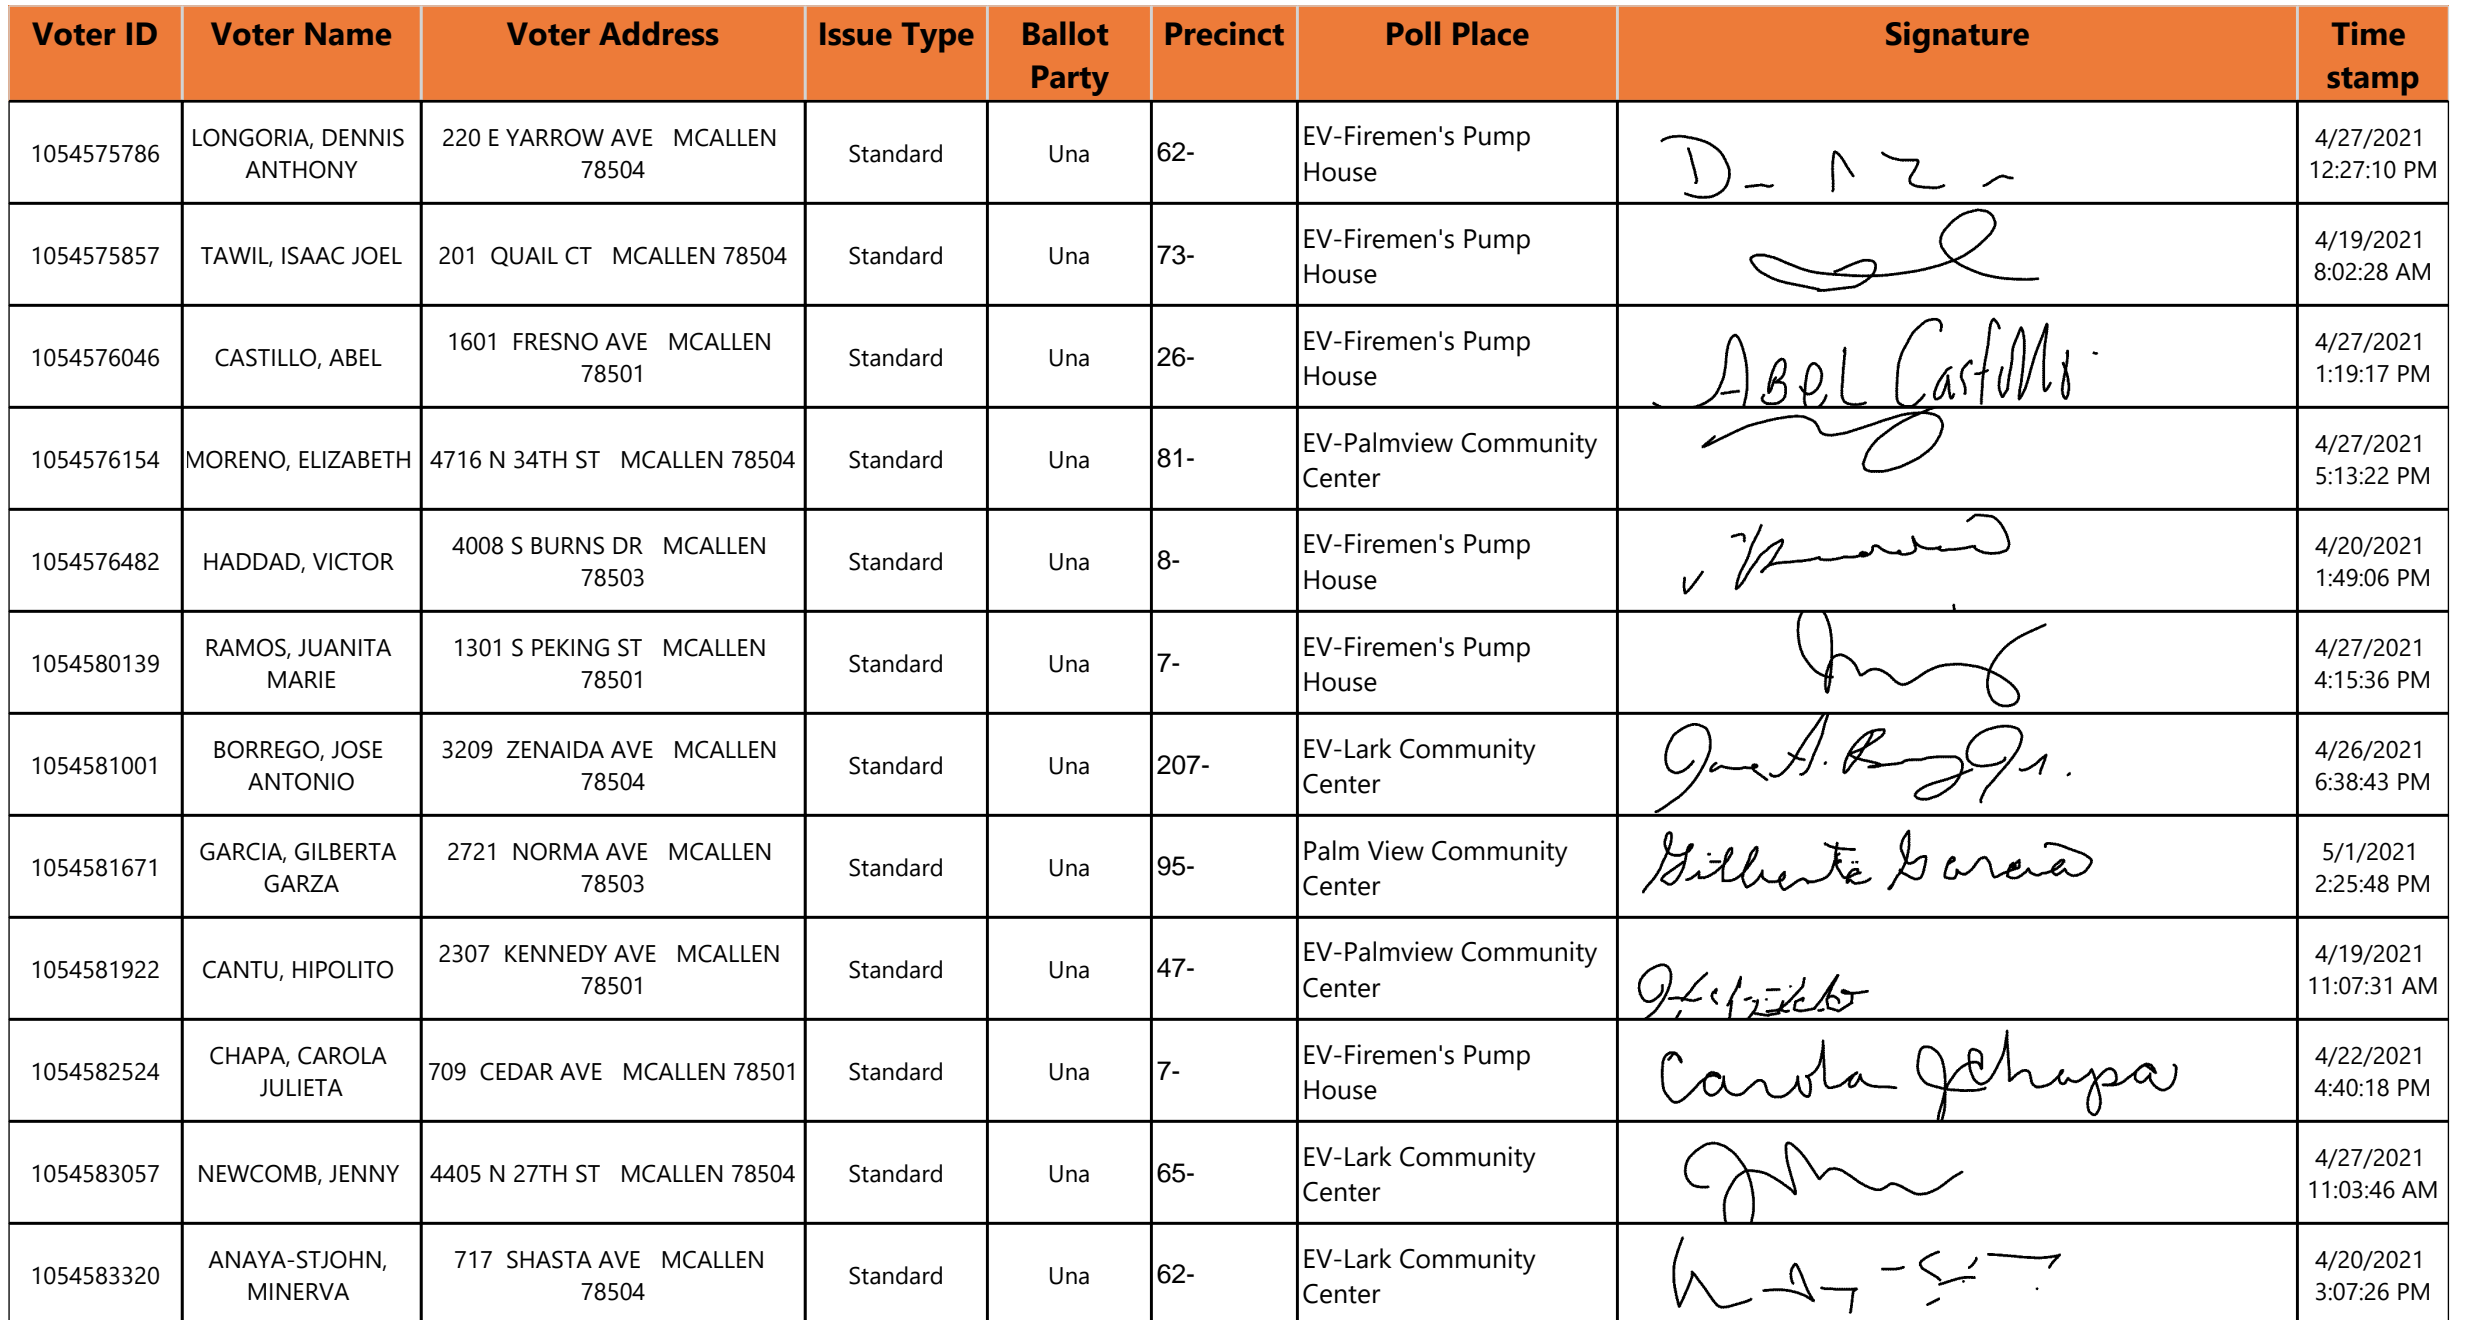 Voter ID Voter Name Voter Address Issue Type Ballot Party Precinct Poll Place Signature Time stamp
1054575786 LONGORIA, DENNIS ANTHONY 220 E YARROW AVE MCALLEN 78504 Standard Una 62- EV-Firemen's Pump House 4/27/2021 12:27:10 PM
1054575857 TAWIL, ISAAC JOEL 201 QUAIL CT MCALLEN 78504 Standard Una 73- EV-Firemen's Pump House 4/19/2021 8:02:28 AM
1054576046 CASTILLO, ABEL 1601 FRESNO AVE MCALLEN 78501 Standard Una 26- EV-Firemen's Pump House ABEL Castillo 4/27/2021 1:19:17 PM
1054576154 MORENO, ELIZABETH 4716 N 34TH ST MCALLEN 78504 Standard Una 81- EV-Palmview Community Center 4/27/2021 5:13:22 PM
1054576482 HADDAD, VICTOR 4008 S BURNS DR MCALLEN 78503 Standard Una 8- EV-Firemen's Pump House 4/20/2021 1:49:06 PM
1054580139 RAMOS, JUANITA MARIE 1301 S PEKING ST MCALLEN 78501 Standard Una 7- EV-Firemen's Pump House 4/27/2021 4:15:36 PM
1054581001 BORREGO, JOSE ANTONIO 3209 ZENAIDA AVE MCALLEN 78504 Standard Una 207- EV-Lark Community Center 4/26/2021 6:38:43 PM
1054581671 GARCIA, GILBERTA GARZA 2721 NORMA AVE MCALLEN 78503 Standard Una 95- Palm View Community Center Gilberta Garcia 5/1/2021 2:25:48 PM
1054581922 CANTU, HIPOLITO 2307 KENNEDY AVE MCALLEN 78501 Standard Una 47- EV-Palmview Community Center 4/19/2021 11:07:31 AM
1054582524 CHAPA, CAROLA JULIETA 709 CEDAR AVE MCALLEN 78501 Standard Una 7- EV-Firemen's Pump House Carola J Chapa 4/22/2021 4:40:18 PM
1054583057 NEWCOMB, JENNY 4405 N 27TH ST MCALLEN 78504 Standard Una 65- EV-Lark Community Center 4/27/2021 11:03:46 AM
1054583320 ANAYA-STJOHN, MINERVA 717 SHASTA AVE MCALLEN 78504 Standard Una 62- EV-Lark Community Center 4/20/2021 3:07:26 PM